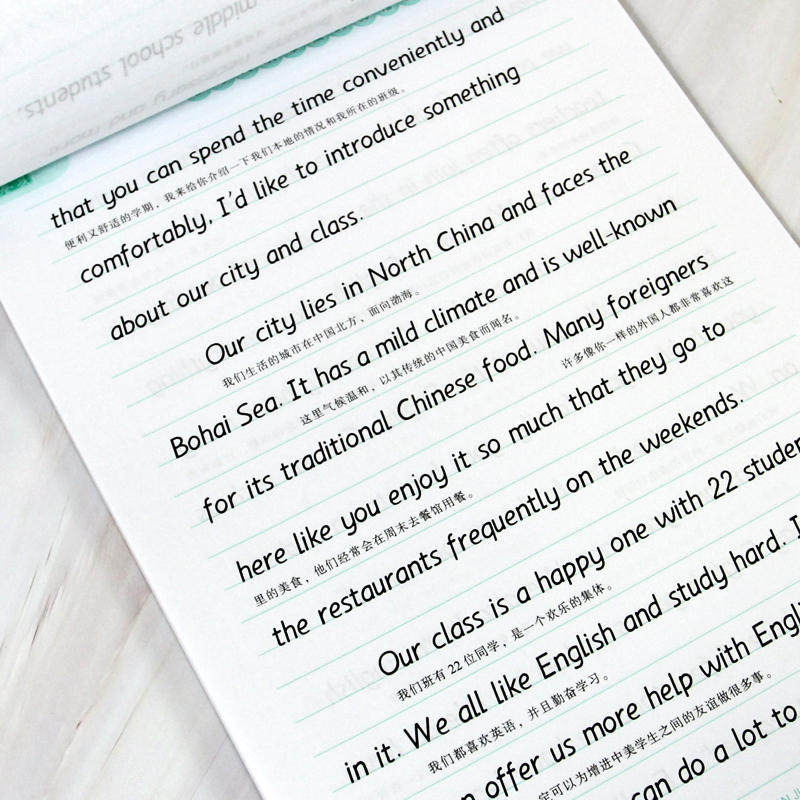 middle school students.
that you can spend the time conveniently and
便利又舒适的学期，我来给你介绍一下我们本地的情况和我所在的班级。
comfortably, I'd like to introduce something
about our city and class.
Our city lies in North China and faces the
我们生活的城市在中国北方，面向渤海。
Bohai Sea. It has a mild climate and is well-known
这里气候温和，以其传统的中国美食而闻名。
许多像你一样的外国人都非常喜欢这
for its traditional Chinese food. Many foreigners
here like you enjoy it so much that they go to
里的美食，他们经常会在周末去餐馆用餐。
the restaurants frequently on the weekends.
Our class is a happy one with 22 studen
我们班有 22 位同学，是一个欢乐的集体。
in it. We all like English and study hard. I
我们都喜欢英语，并且勤奋学习。
offer us more help with Engl
定可以为增进中美学生之间的友谊做很多事。
can do a lot to